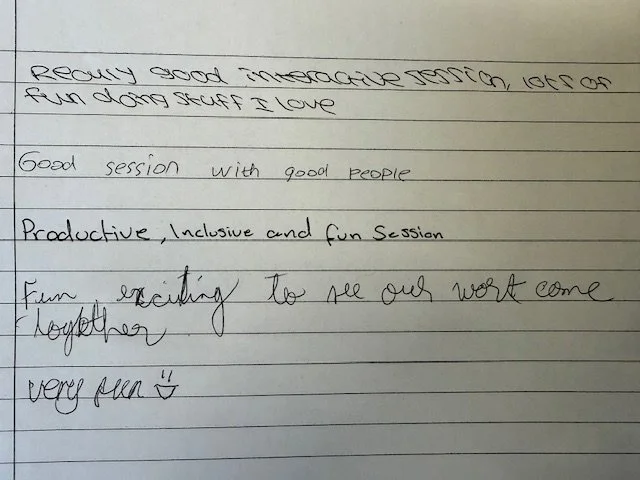 Really good interactive session, lots of
fun doing stuff I love
Good session with good people
Productive, Inclusive and fun Session
Fun, exciting to see our work come
together
very fun